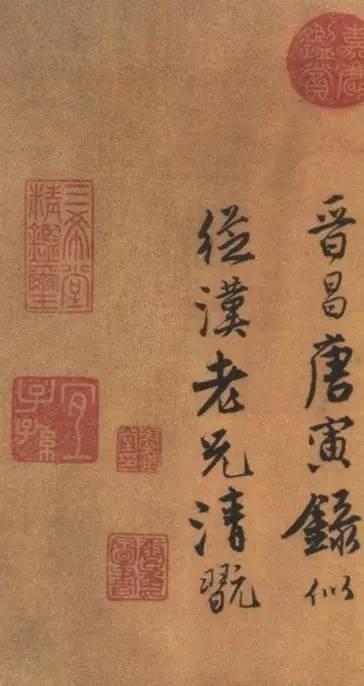 嘉慶鑑賞
晉昌唐寅錄似
從漢老兄清翫
三希堂精鑑璽
宜子孫